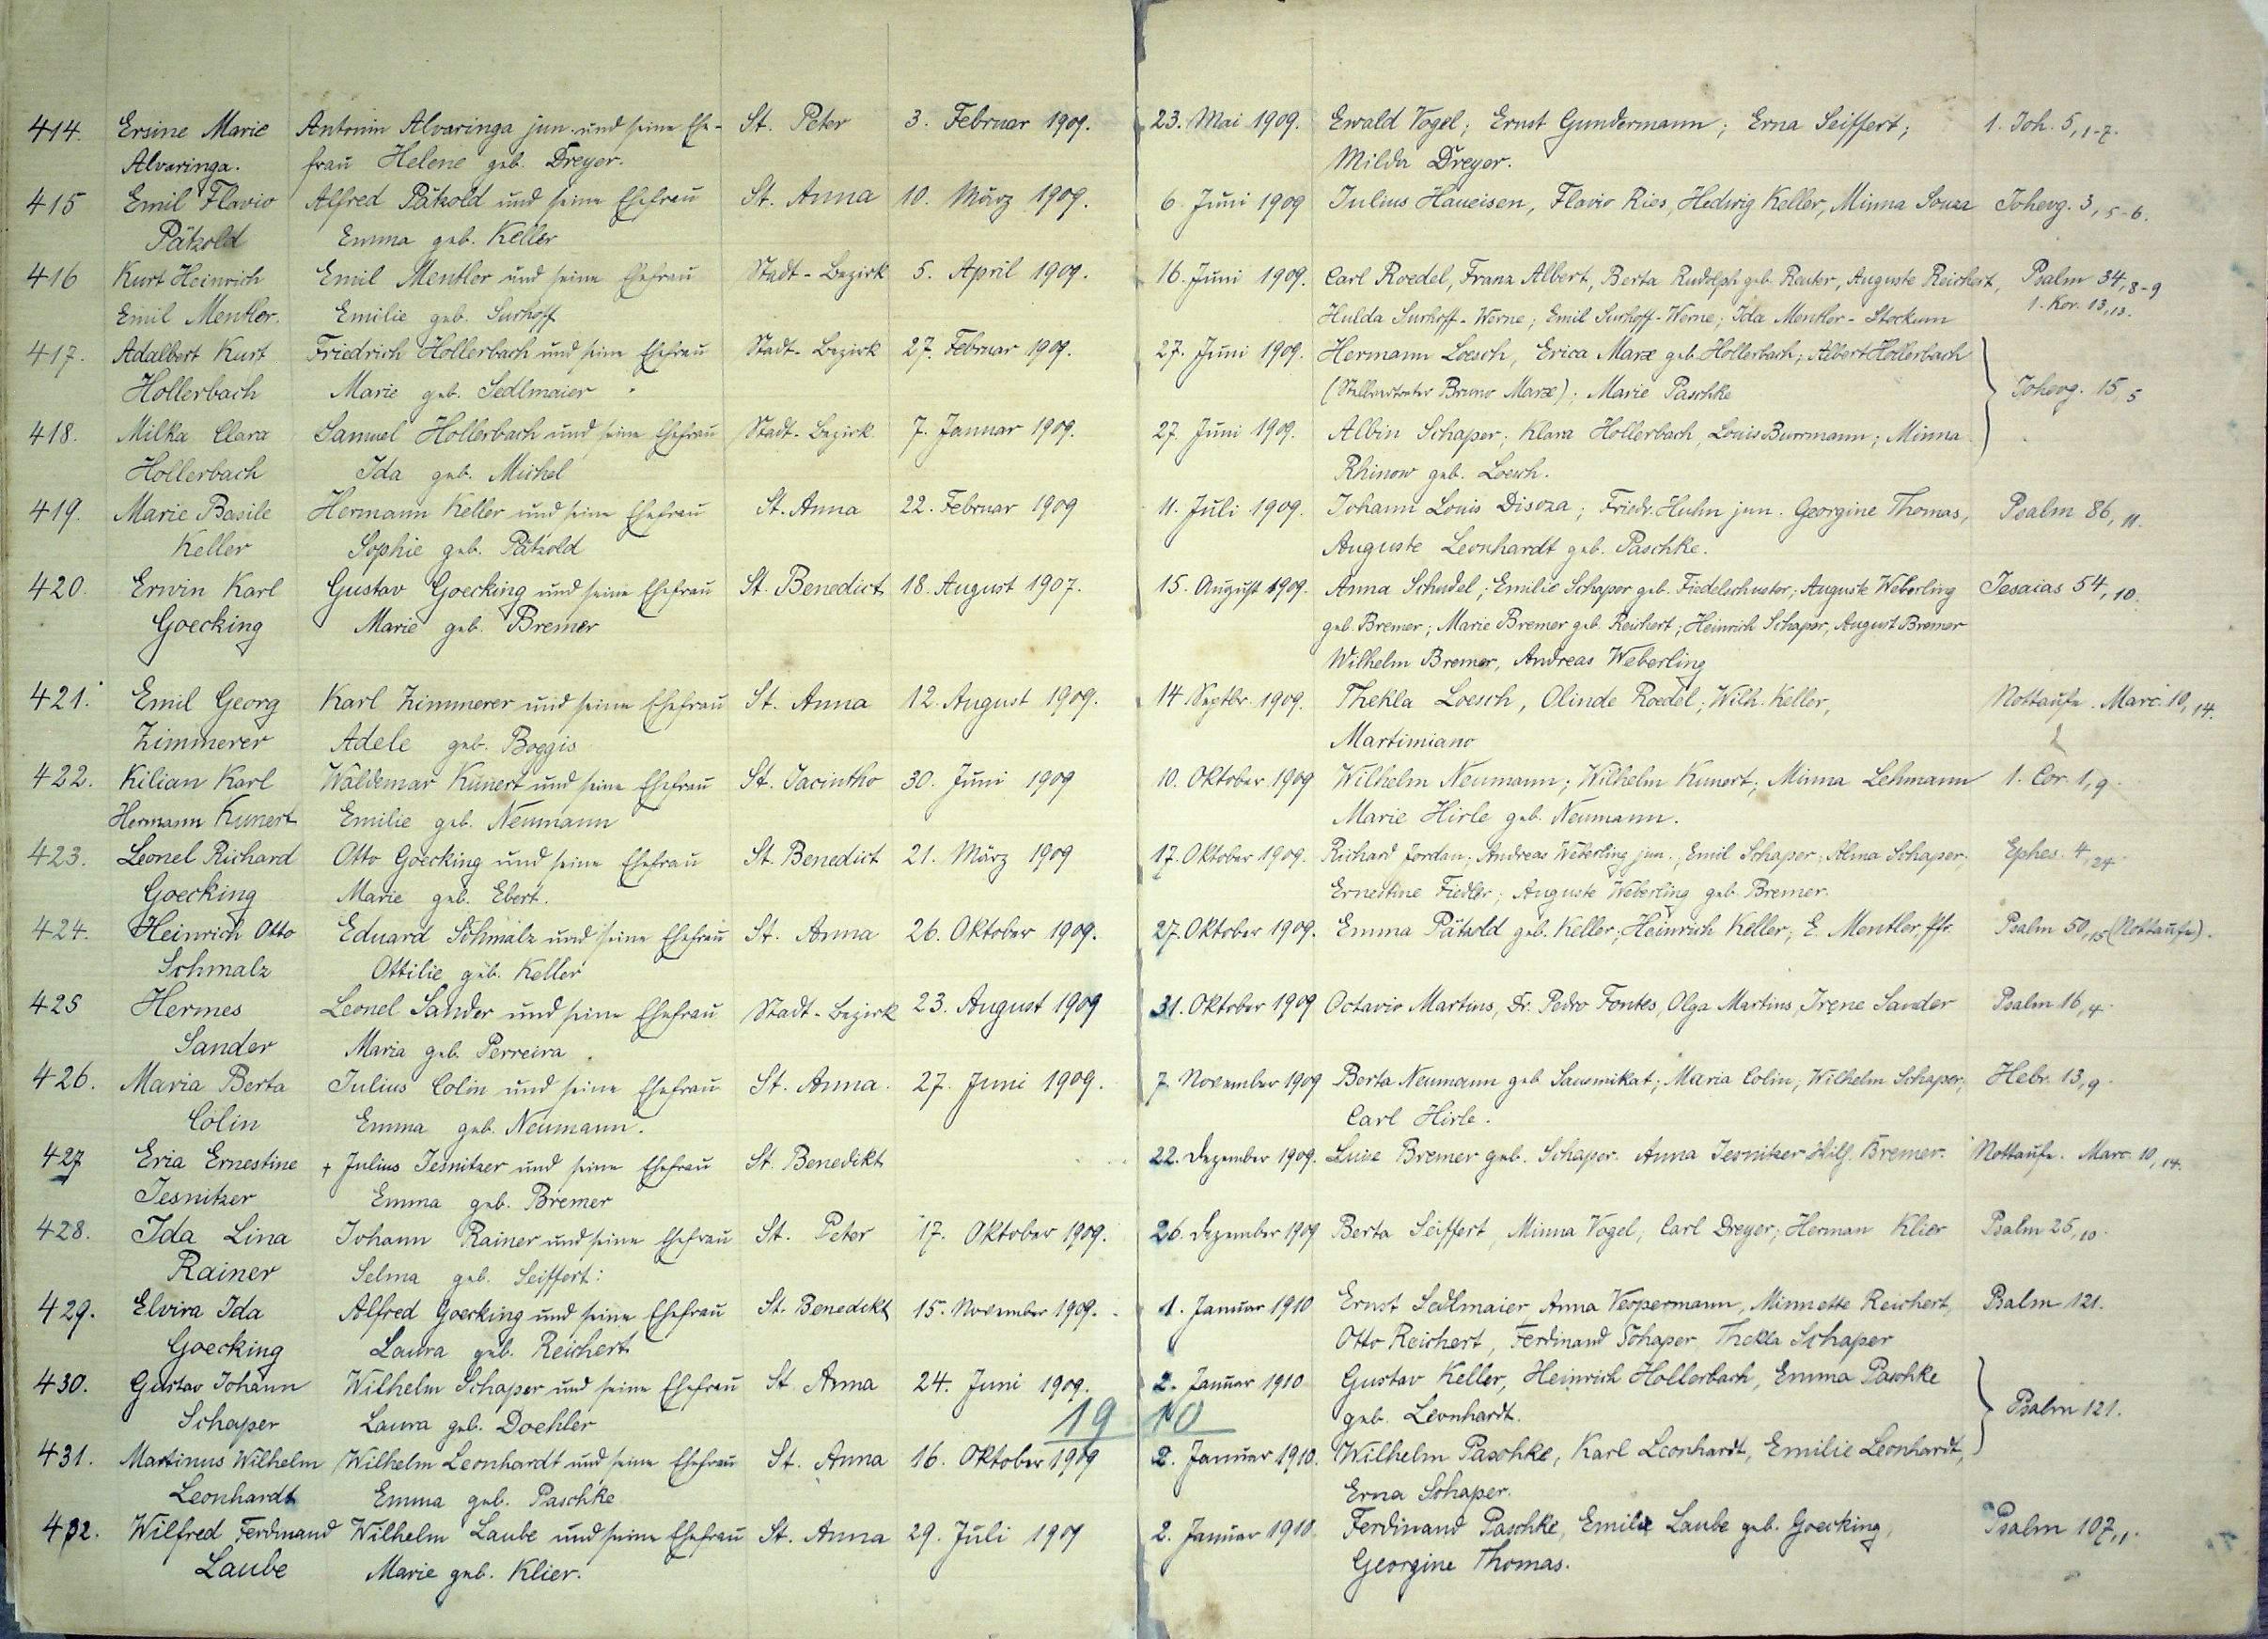 414. Ersine Marie Antonin Alvaringa jun. und seine Ehe- St. Peter 3. Februar 1909. 23. Mai 1909. Ewald Vogel; Ernst Gundermann; Erna Seiffert; 1. Joh. 5, 1-7.
Alvaringa. frau Helene geb. Dreyer. Milda Dreyer.
415 Emil Flavio Alfred Pätzold und seine Ehefrau St. Anna 10. März 1909. 6. Juni 1909 Julius Haueisen, Flavio Ries, Hedwig Keller, Minna Souza Johevg. 3, 5-6.
Pätzold Emma geb. Keller
416 Kurt Heinrich Emil Mentler und seine Ehefrau Stadt-Bezirk 5. April 1909. 16. Juni 1909. Carl Roedel, Franz Albert, Berta Rudolph geb. Reuter, Auguste Reichert, Psalm 34, 8-9
Emil Mentler. Emilie geb. Surhoff Hulda Surhoff-Werne; Emil Surhoff-Werne; Ida Mentler-Stockum 1. Kor. 13, 13.
417. Adalbert Kurt Friedrich Hollerbach und seine Ehefrau Stadt-Bezirk 27. Februar 1909. 27. Juni 1909. Hermann Loesch, Erica Marx geb. Hollerbach; Albert Hollerbach
Hollerbach Marie geb. Sedlmaier (Stellvertreter Bruno Marx); Marie Paschke Johevg. 15, 5
418. Milka Clara Samuel Hollerbach und seine Ehefrau Stadt-Bezirk 7. Januar 1909. 27. Juni 1909. Albin Schaper; Klara Hollerbach, Louis Burrmann; Minna
Hollerbach Ida geb. Michel Rhinow geb. Loesch.
419. Marie Basile Hermann Keller und seine Ehefrau St. Anna 22. Februar 1909 11. Juli 1909. Johann Louis Disoza; Friedr. Huhn jun. Georgine Thomas, Psalm 86, 11.
Keller Sophie geb. Pätzold Auguste Leonhardt geb. Paschke.
420. Erwin Karl Gustav Goecking und seine Ehefrau St. Benedict 18. August 1907. 15. August 1909. Anna Schudel; Emilie Schaper geb. Fiedelschuster; Auguste Weberling Jesaias 54, 10.
Goecking Marie geb. Bremer geb. Bremer; Marie Bremer geb. Reichert; Heinrich Schaper, August Bremer
Wilhelm Bremer, Andreas Weberling
421. Emil Georg Karl Zimmerer und seine Ehefrau St. Anna 12. August 1909. 14 Septbr. 1909. Thekla Loesch, Olinde Roedel; Wilh. Keller, Nottaufe. Marc. 10, 14.
Zimmerer Adele geb. Boggis Martimiano
422. Kilian Karl Waldemar Kunert und seine Ehefrau St. Jacintho 30. Juni 1909 10. Oktober 1909 Wilhelm Neumann; Wilhelm Kunert; Minna Lehmann 1. Cor. 1, 9.
Hermann Kunert Emilie geb. Neumann Marie Hirle geb. Neumann.
423. Leonel Richard Otto Goecking und seine Ehefrau St. Benedict 21. März 1909 17. Oktober 1909. Richard Jordan; Andreas Weberling jun.; Emil Schaper; Alma Schaper; Ephes. 4, 24.
Goecking Marie geb. Ebert. Ernestine Fiedler; Auguste Weberling geb. Bremer.
424. Heinrich Otto Eduard Schmalz und seine Ehefrau St. Anna 26. Oktober 1909. 27. Oktober 1909. Emma Pätzold geb. Keller; Heinrich Keller; E. Mentler, Pfr. Psalm 50, 15 (Nottaufe).
Schmalz Ottilie geb. Keller
425 Hermes Leonel Sander und seine Ehefrau Stadt-Bezirk 23. August 1909 31. Oktober 1909 Octavio Martins, Dr. Pedro Fontes, Olga Martins, Irene Sander Psalm 16, 4.
Sander Maria geb. Perreira.
426. Maria Berta Julius Colin und seine Ehefrau St. Anna. 27. Juni 1909. 7. November 1909 Berta Neumann geb. Sausmikat; Maria Colin; Wilhelm Schaper; Hebr. 13, 9.
Colin Emma geb. Neumann. Carl Hirle.
427 Eria Ernestine + Julius Jesnitzer und seine Ehefrau St. Benedikt 22. Dezember 1909. Luise Bremer geb. Schaper. Anna Jesnitzer Wilh. Bremer. Nottaufe. Marc. 10, 14.
Jesnitzer Emma geb. Bremer
428. Ida Lina Johann Rainer und seine Ehefrau St. Peter 17. Oktober 1909. 26. Dezember 1909 Berta Seiffert, Minna Vogel, Carl Dreyer; Herman Klier Psalm 25, 10.
Rainer Selma geb. Seiffert:
429. Elvira Ida Alfred Goecking und seine Ehefrau St. Benedikt 15. November 1909. 1. Januar 1910 Ernst Sedlmaier, Anna Vespermann, Minnette Reichert, Psalm 121.
Goecking Laura geb. Reichert Otto Reichert, Ferdinand Schaper Thekla Schaper
430. Gustav Johann Wilhelm Schaper und seine Ehefrau St. Anna 24. Juni 1909. 2. Januar 1910 Gustav Keller, Heinrich Hollerbach, Emma Paschke
Schaper Laura geb. Doehler 19 10 geb. Leonhardt. Psalm 121.
431. Martinus Wilhelm Wilhelm Leonhardt und seine Ehefrau St. Anna 16. Oktober 1909 2. Januar 1910. Wilhelm Paschke, Karl Leonhardt, Emilie Leonhardt,
Leonhardt Emma geb. Paschke Erna Schaper.
432. Wilfred Ferdinand Wilhelm Laube und seine Ehefrau St. Anna 29. Juli 1909 2. Januar 1910. Ferdinand Paschke, Emilie Laube geb. Goecking, Psalm 107, 1.
Laube Marie geb. Klier. Georgine Thomas.